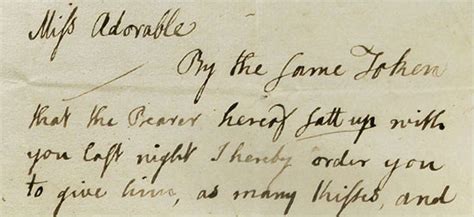 Miss Adorable
By the same Token
that the Bearer hereof satt up with
you last night I hereby order you
to give him, as many Kisses, and